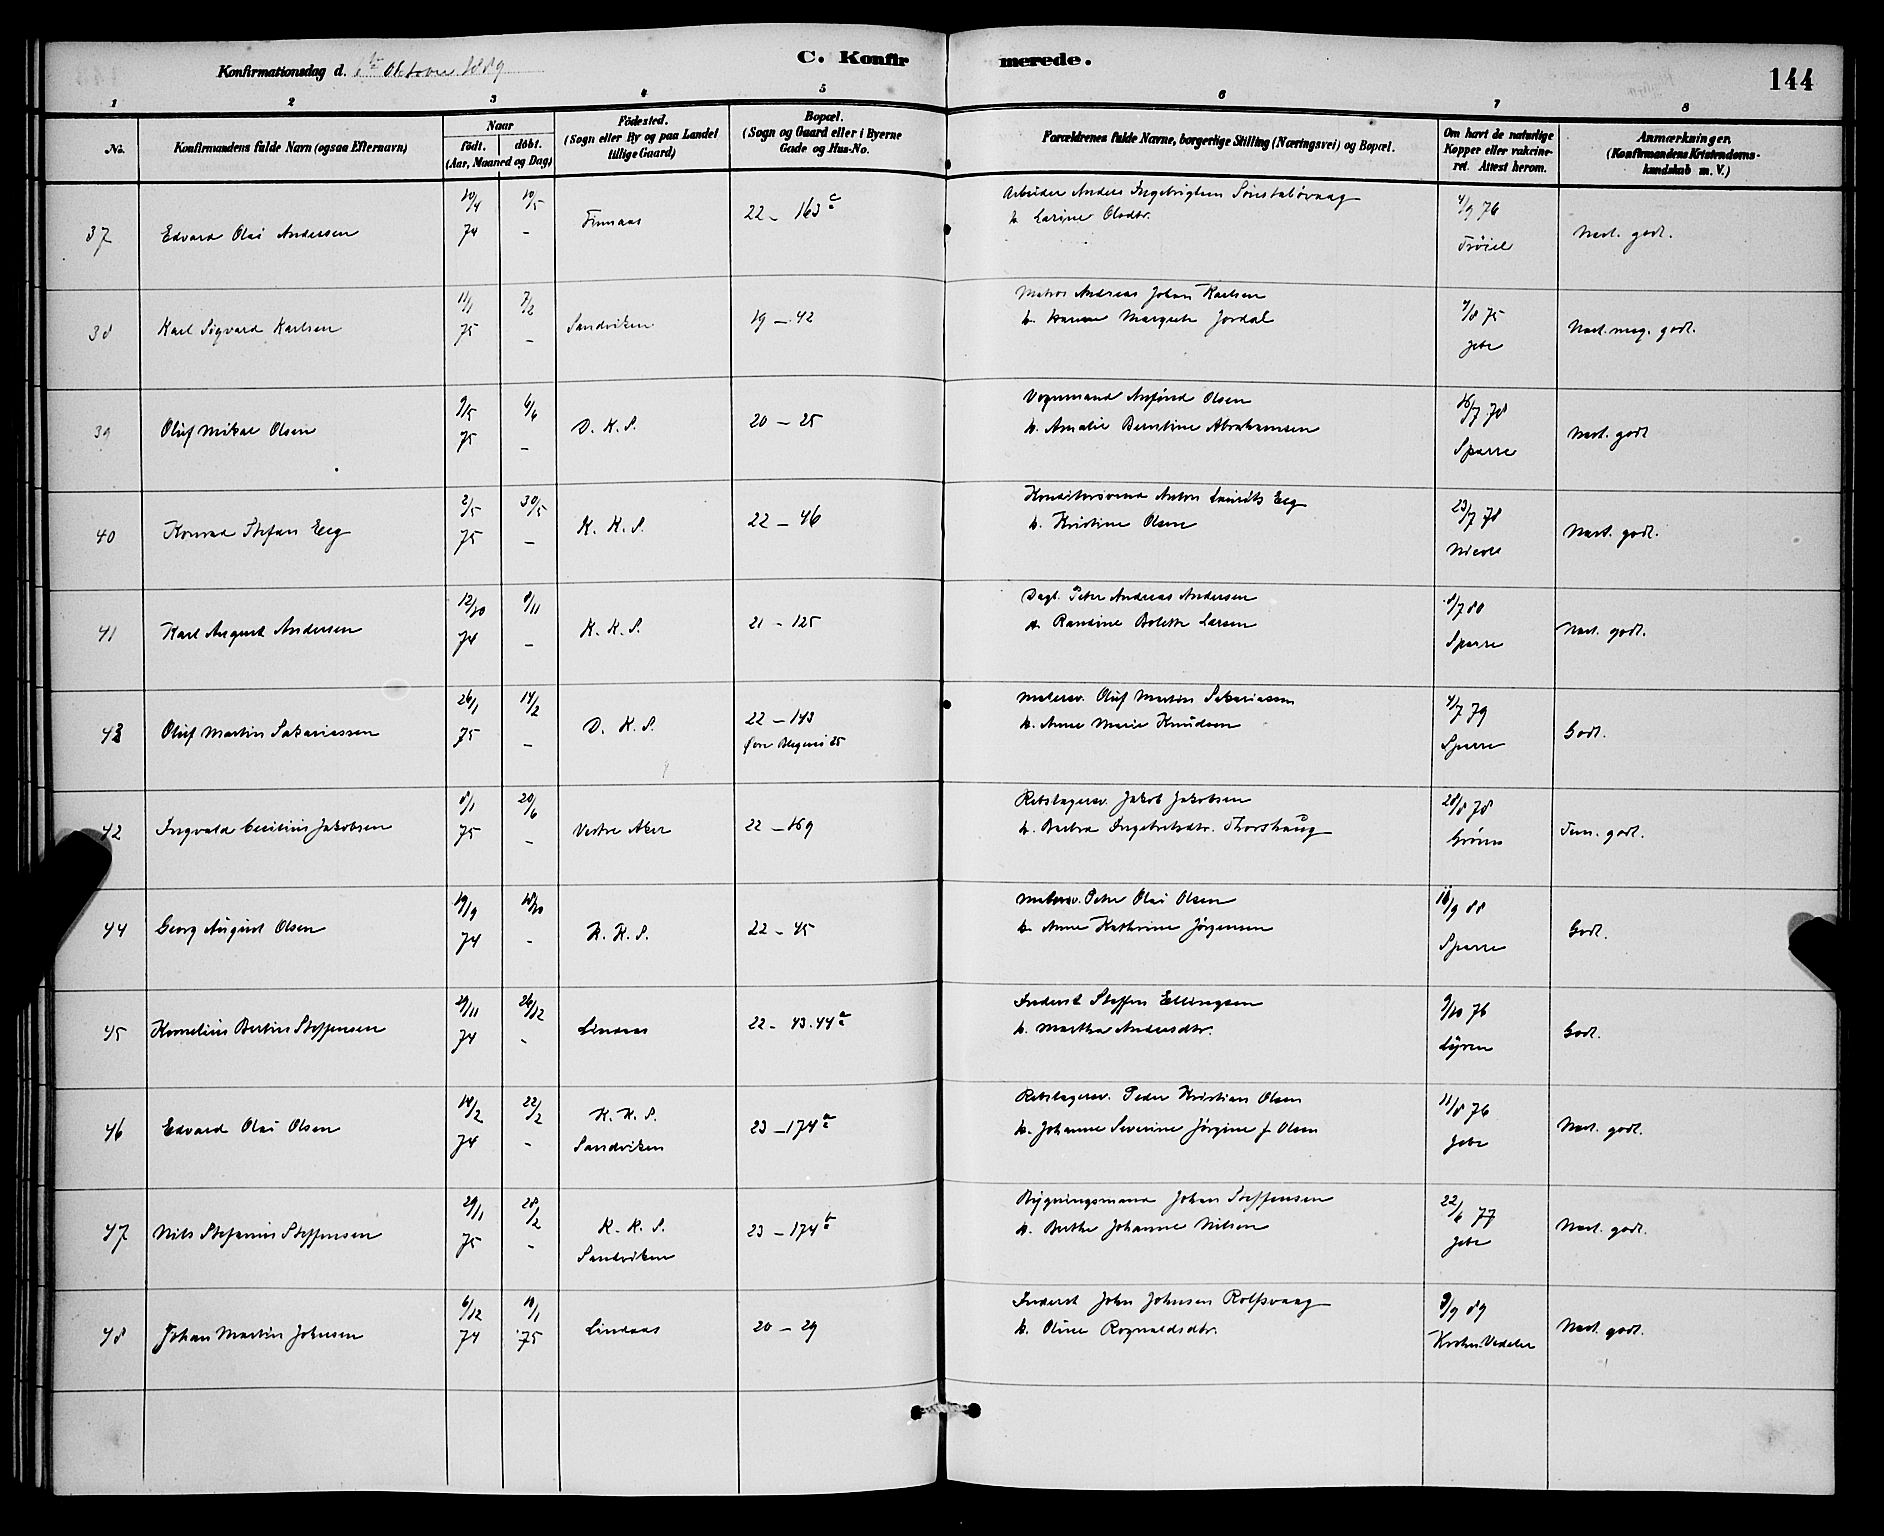 Konfirmationsdag d. Oktober 1889
C. Konfirmerede.
144
1 2 3 4 5 6 7 8
No.
Konfirmandens fulde Navn (ogsaa Efternavn)
Naar
födt. döbt.
(Aar, Maaned og Dag)
Födested.
(Sogn eller By og paa Landet
tillige Gaard)
Bopæl.
(Sogn og Gaard eller i Byerne
Gade og Hus-No.
Forældrenes fulde Navne, borgerlige Stilling (Næringsvei) og Bopæl.
Om havt de naturlige
Kopper eller vakcine-
ret. Attest herom.
Anmærkninger.
(Konfirmandens Kristendoms-
kundskab m. V.)
37 Edvard Olai Andersen
10/4 74 10/5 -
Finnaas
22 - 163 c
Arbeider Anders Ingebrigtsen
h. Larine Olsdtr.
4/9 76
Trøiel
Next. godt.
38 Karl Sigvard Karlsen
11/1 75 7/2 -
Sandviken
19 - 42
Matros Andreas Johan Karlsen
h. Margrete Jordal
7/8 75
Jebe
Next. meg. godt.
39 Oluf Mikal Olsen
9/5 75 6/6 -
D. K. S.
20 - 25
Vognmand Olsen
h. Amalie Berntine Abrahamsen
16/7 78
Sparre
Next. godt
40 Konrad Stefan Eeg
2/5 75 30/5 -
K. K. S.
22 - 46
Konditorsvend Anton Lauritz Eeg
h. Kristine Olsen
23/7 78
Next. godt.
41 Karl August Andersen
12/10 74 8/11 -
K. K. S.
21 - 125
Dagl. Peter Andreas Andersen
h. Randine Bolette Larsen
8/7 80
Sparre
Next. godt.
43 Oluf Martin Sakariassen
26/1 75 14/2 -
D. K. S.
22 - 143
Øvre Blegevei 25
Malersv. Oluf Martin Sakariassen
h. Anne Marie Knudsen
4/7 79
Sparre
Godt.
42 Ingvald Cecilius Jakobsen
8/1 75 20/6 -
Vestre Aker
22 - 169
Rebslagersv. Jakob Jakobsen
h. Barbra Ingebretsdtr. Thorshaug
28/8 78
Grønn
Tem. godt.
44 Georg August Olsen
19/9 74 18/10 -
K. K. S.
22 - 45
Malersv. Peter Olai Olsen
h. Anne Kathrine Jörgensen
16/9 88
Sparre
Godt.
45 Kornelius Bertin Steffensen
29/11 74 26/12 -
Lindaas
22 - 43.44 a
Inderst Steffen Ellingsen
h. Martha Andersdtr.
9/10 76
Lyren
Godt.
46 Edvard Olai Olsen
14/2 74 22/2 -
K. K. S.
Sandviken
23 - 174 a
Rebslagersv. Peder Kristian Olsen
h. Johanne Severine Jörgine f. Olsen
11/8 76
Jebe
Next. godt.
47 Nils Stefanus Steffensen
29/1 75 28/2 -
K. K. S.
Sandviken
23 - 174 b
Bygningsmand Johan Steffensen
h. Berthe Johanne Nilsen
22/6 77
Jebe
Next. godt.
48 Johan Martin Johnsen
6/12 74 10/1 75
Lindaas
20 - 29
Inderst John Johnsen Rolfsvaag
h. Oline Rognaldsdtr.
9/9 89
Vedeler
Next. godt.